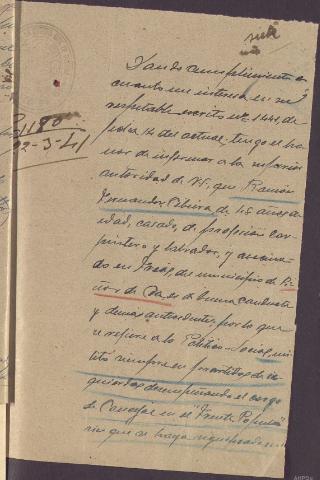 1180
12-3-41
Dando cumplimiento a
cuanto me interesa en su
respetable escrito nº 1441, de
fecha 12 del actual; tengo el ho
nor de informar a la superior
autoridad de V.S. que Ramón
Fernandez de 45 años de
edad, casado, de profesión car
pintero y labrador, y avecina
do en del municipio de Ri
es de buena conducta
y demas antecedentes, por lo que
se refiere a lo Politico-Social, mi
litó siempre en partidos de iz
quierdas desempeñando el cargo
de Concejal en el "Frente Popular"
sin que se haya significado